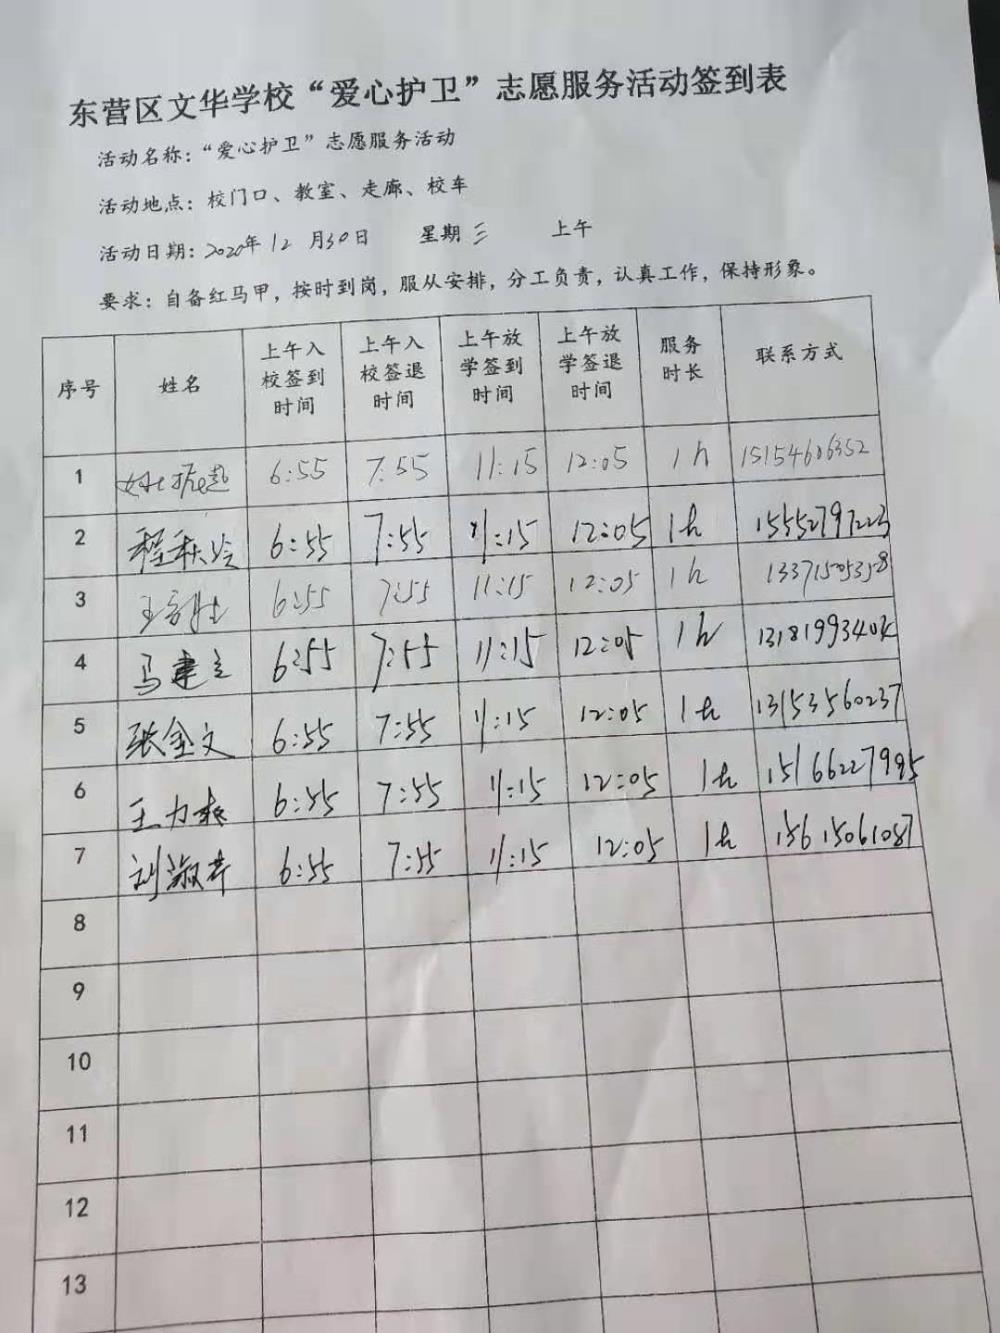 东营区文华学校“爱心护卫”志愿服务活动签到表
活动名称：“爱心护卫”志愿服务活动
活动地点：校门口、教室、走廊、校车
活动日期：2020年12月30日 星期三 上午
要求：自备红马甲，按时到岗，服从安排，分工负责，认真工作，保持形象。
序号 姓名 上午入校签到时间 上午入校签退时间 上午放学签到时间 上午放学签退时间 服务时长 联系方式
1 6:55 7:55 11:15 12:05 1h 15154606352
2 程秋玲 6:55 7:55 11:15 12:05 1h 15552797223
3 6:55 7:55 11:15 12:05 1h 13371505358
4 马建立 6:55 7:55 11:15 12:05 1h
5 张金文 6:55 7:55 11:15 12:05 1h 13153560237
6 王力 6:55 7:55 11:15 12:05 1h 15166227995
7 刘淑芹 6:55 7:55 11:15 12:05 1h 15615061087
8
9
10
11
12
13